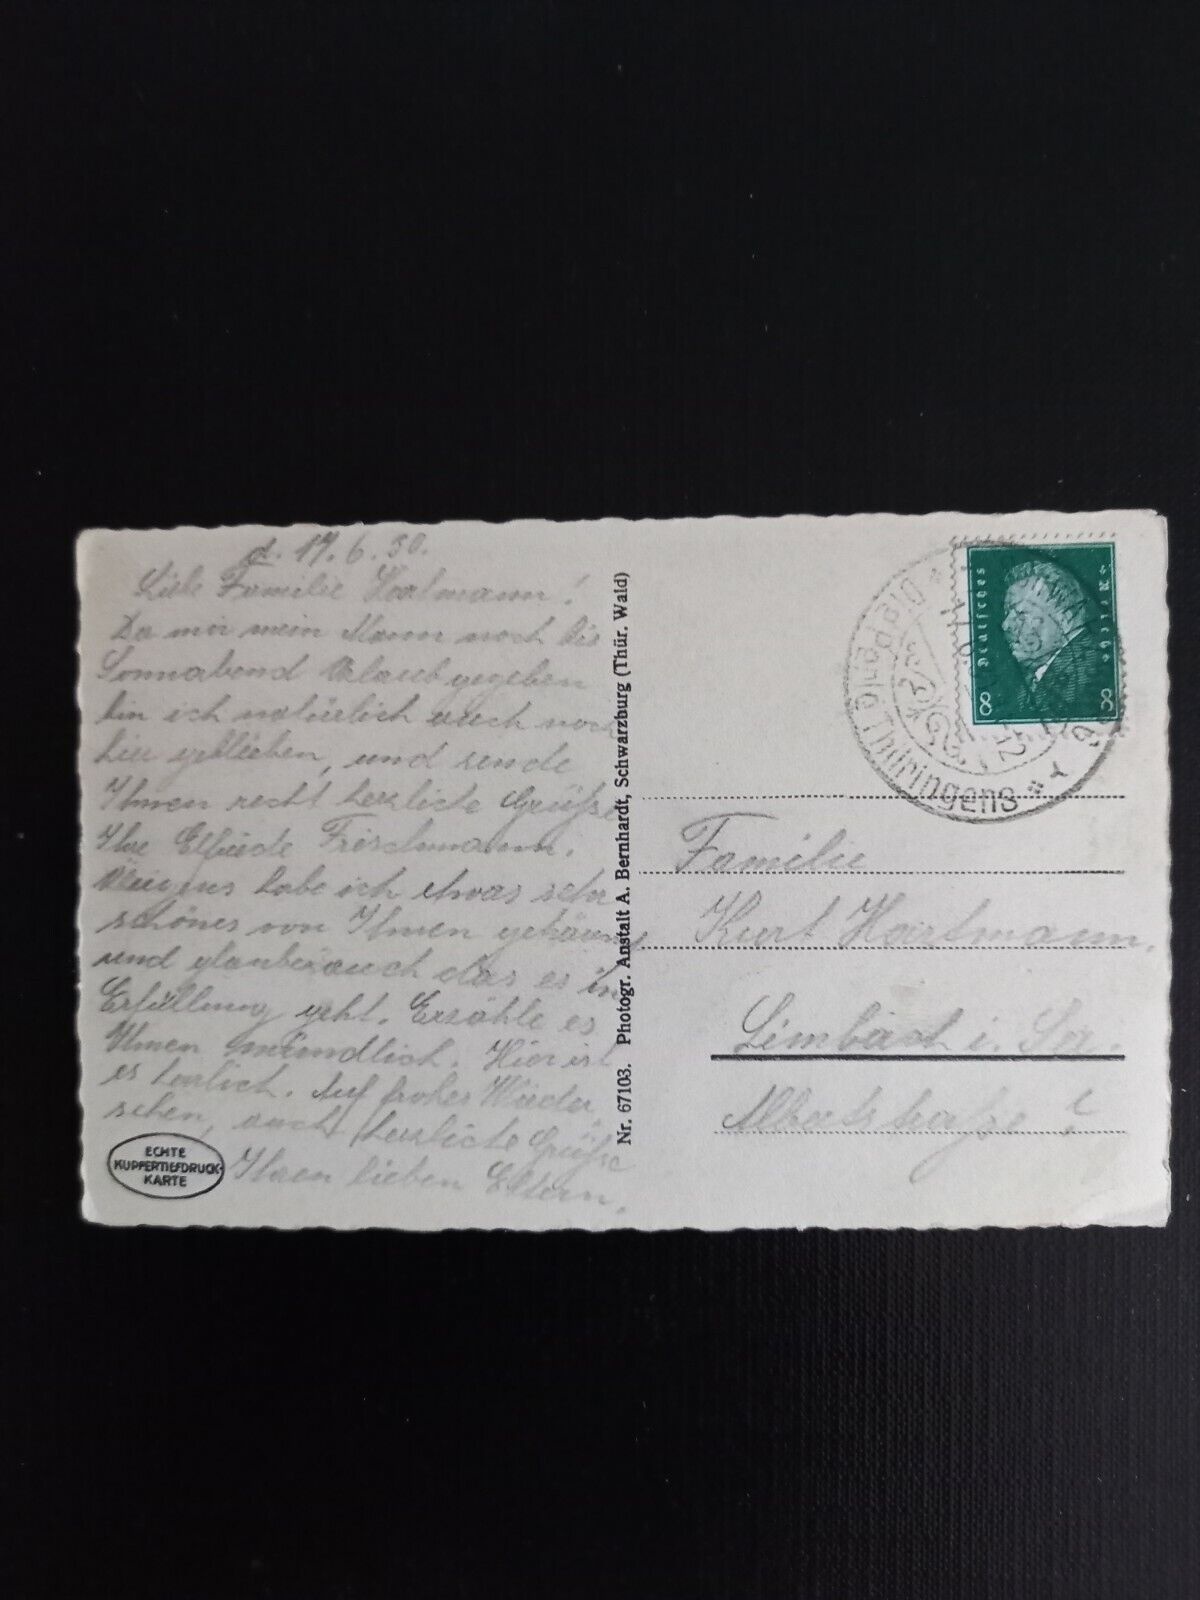 d. 17.6.30.
Liebe Familie Hartmann!
Da mir mein Mann noch bis
Sonnabend Urlaub gegeben
bin ich natürlich auch noch
hier geblieben, und sende
Ihnen recht herzliche Grüße
Ihre Elfriede Frischmann.
habe ich etwas sehr
schönes von Ihnen
und glaube auch das es in
Erfüllung geht. Erzähle es
Ihnen mündlich. Hier ist
es herlich. Auf frohes Wieder
sehen, auch herzliche Grüße
Ihren lieben Eltern.
ECHTE
KUPFERTIEFDRUCK-
KARTE
Nr. 67103. Photogr. Anstalt A. Bernhardt, Schwarzburg (Thür. Wald)
Deutsches Reich
8 8
Thüringens
Familie
Kurt Hartmann.
Limbach i. Sa.